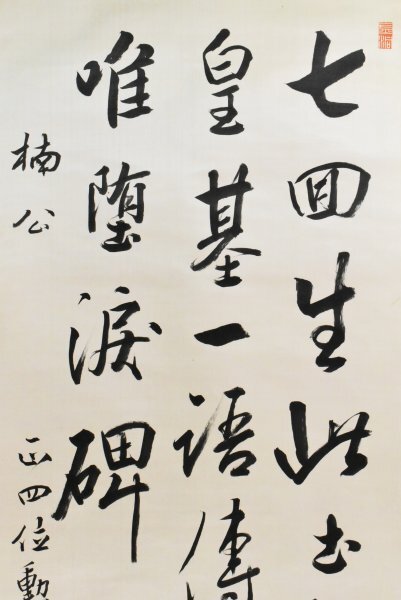 七回生此土
皇基一語傳
唯堕淚碑
楠公
正四位勳